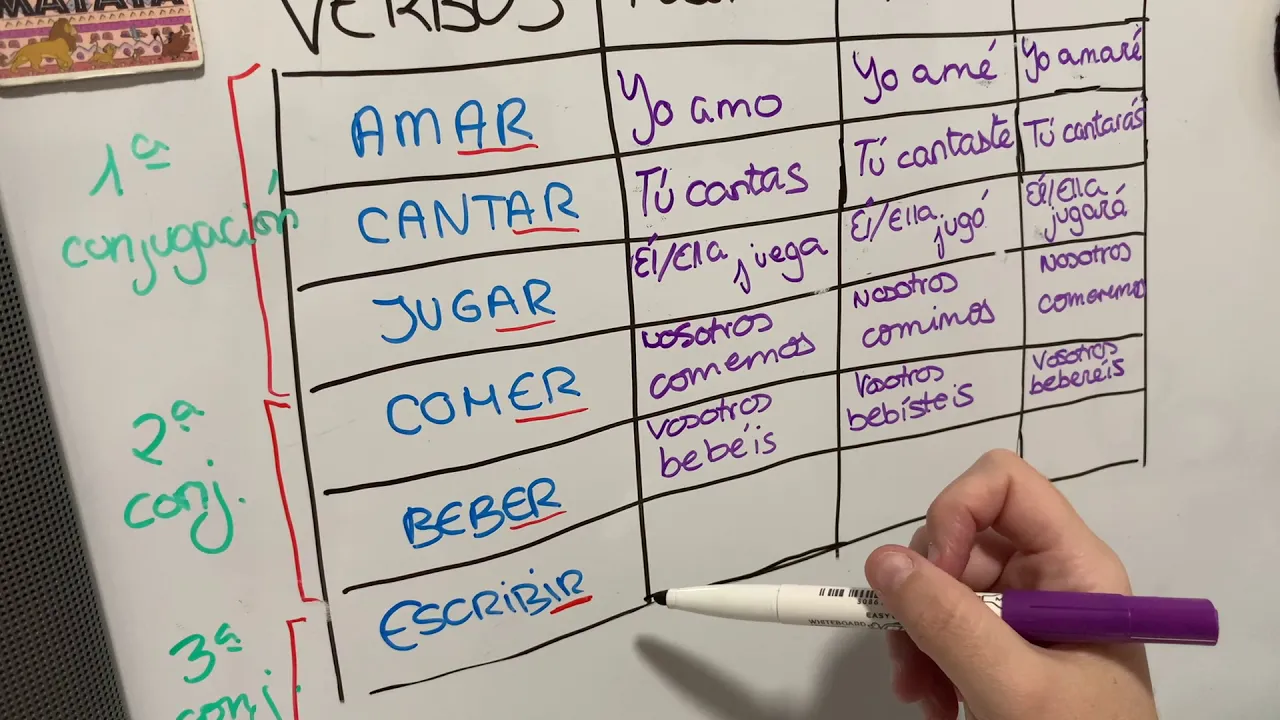 MATATA
VERBOS
AMAR
Yo amo
Yo amé
Yo amaré
1ª
conjugación
CANTAR
Tú cantas
Tú cantaste
Tú cantarás
JUGAR
Él/Ella juega
Él/Ella jugó
Él/Ella
jugará
COMER
Nosotros
comemos
Nosotros
comimos
Nosotros
comeremos
2ª
conj.
BEBER
Vosotros
bebéis
Vosotros
bebísteis
Vosotros
beberéis
ESCRIBIR
3ª
conj.
EASY
WHITEBOARD